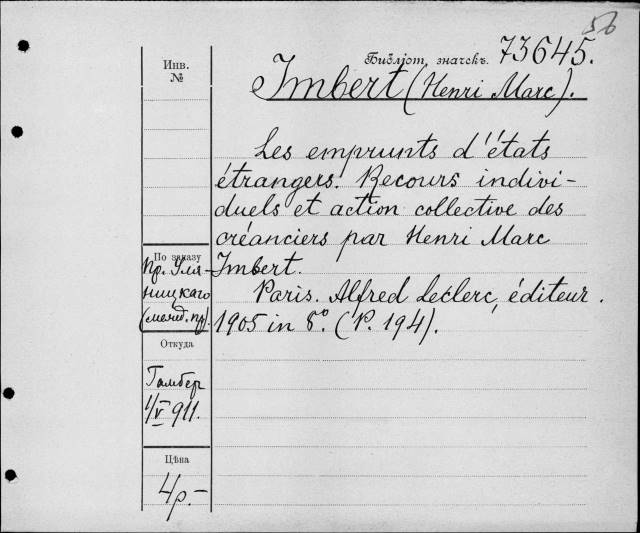 56
Инв.
№
Библіот. значекъ. 73645.
Imbert (Henri Marc).
Les emprunts d'états
étrangers. Recours indivi-
duels et action collective des
créanciers par Henri Marc
Imbert.
Paris. Alfred Leclerc, éditeur.
1905 in 8°. (P. 194).
По заказу
Пр. Уля-
ницкаго
(межд. пр).
Откуда
Гамбер
1/V 911.
Цѣна
4р.-